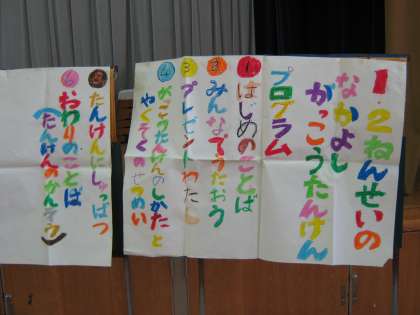 1.2ねんせいの
なかよし
がっこうたんけん
プログラム
①はじめのことば
②みんなでうたおう
③プレゼントわたし
④がっこうたんけんのしかたと
やくそくのせつめい
⑤たんけんにしゅっぱつ
⑥おわりのことば
(たんけんのかんそう)